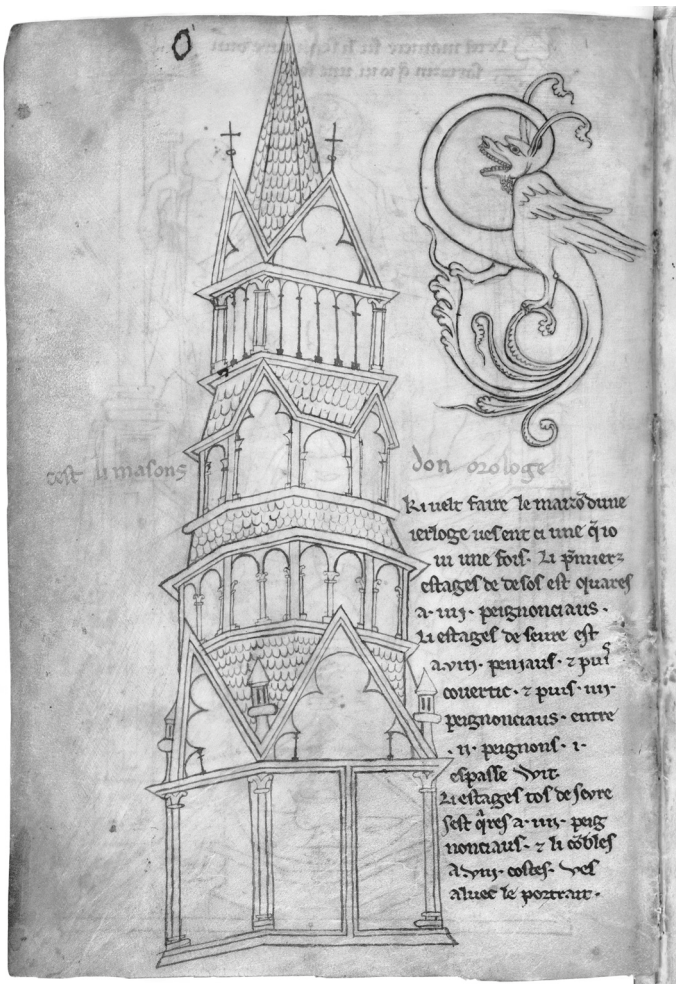 cest li masons don orologe
Ki velt faire le maizõ dune
ierloge ves ent ci une q̃ io
vi une fois. Li p̃mierz
estages de desos est quares
a .iiii. peignonciaus.
Li estages de seure est
a .viii. peniaus. ⁊ puis
covertic. ⁊ puis .iiii.
peignonciaus. entre
.ii. peignons .i.
espasse wit.
Li estages tos de sevre
sest q̃res a .iiii. peig
nonciaus. ⁊ li cõbles
a .viii. costes. ves
aluec le portrait.